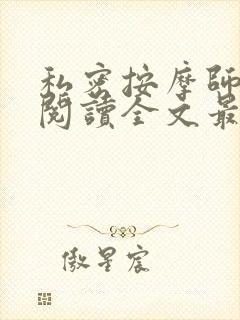 私密按摩師
閱讀全文最
傲星宸